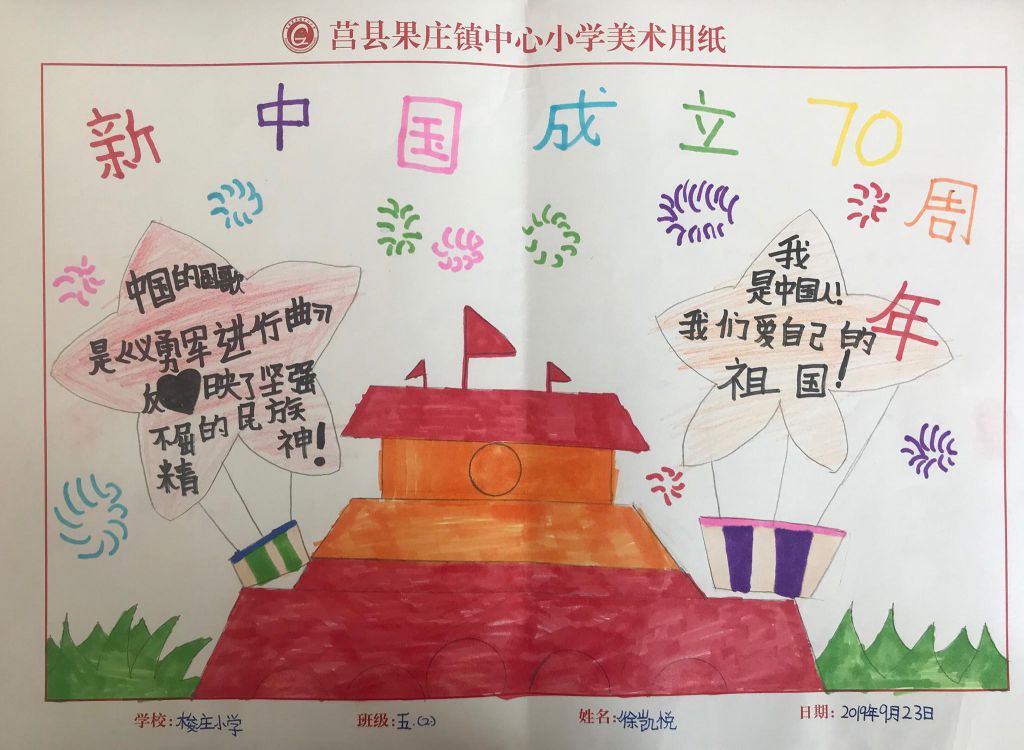 莒县果庄镇中心小学美术用纸
新中国成立70周年
中国的国歌
是《义勇军进行曲》
反映了坚强
不屈的民族
精神!
我
是中国人!
我们要自己的
祖国!
学校:梭庄小学
班级:五.(2)
姓名:徐凯悦
日期:2019年9月23日